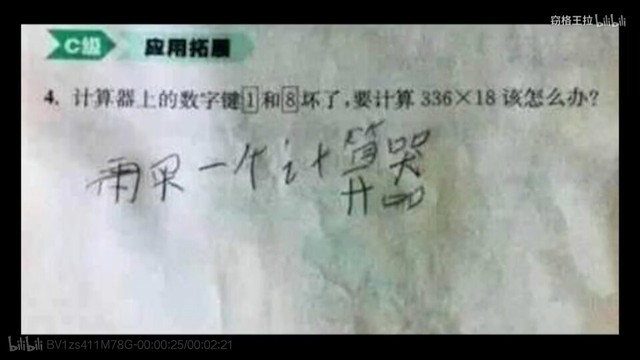 窃格王拉 bilibili
C级 应用拓展
4. 计算器上的数字键1和8坏了,要计算 336×18 该怎么办?
再买一个计算器
bilibili BV1zs411M78G-00:00:25/00:02:21